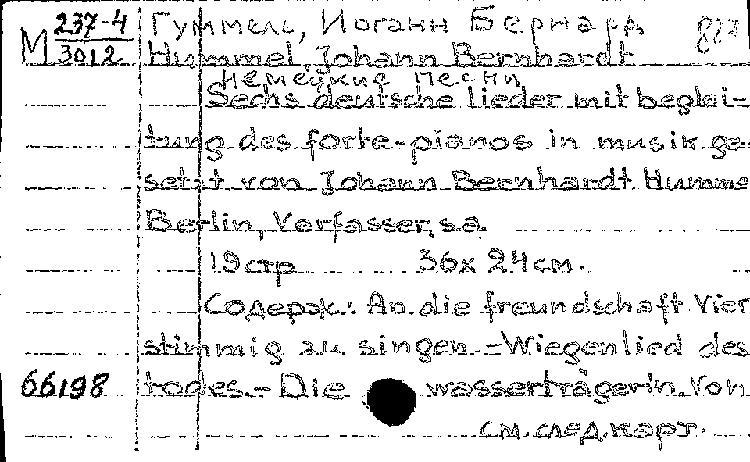 М 237-4 Гуммель, Иоганн Бернард
3012 Hummel, Johann Bernhardt
Немецкие песни
Sechs deutsche lieder mit beglei-
tung des forte-pianos in musik ge-
setzt von Johann Bernhardt Humme
Berlin, Verfasser, s.a.
19 стр 36х24 см.
Содерж.: An die freundschaft Vier
stimmig zu singen. - Wiegenlied des
66198 todes. - Die wasserträgerin. Von
см. след. карт.